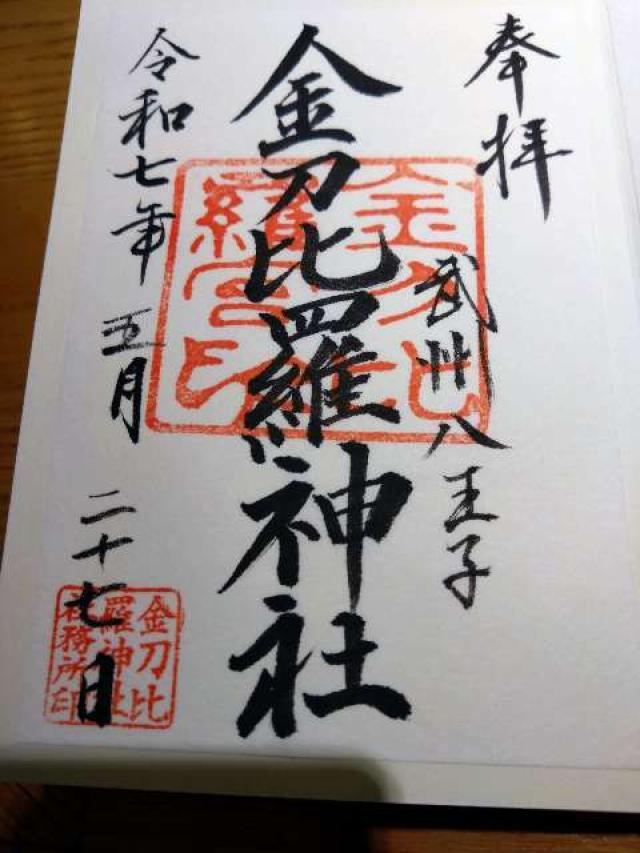 奉拝
武州八王子
金刀比羅神社
令和七年 五月 二十七日
金刀比羅宮印
金刀比羅神社社務所印